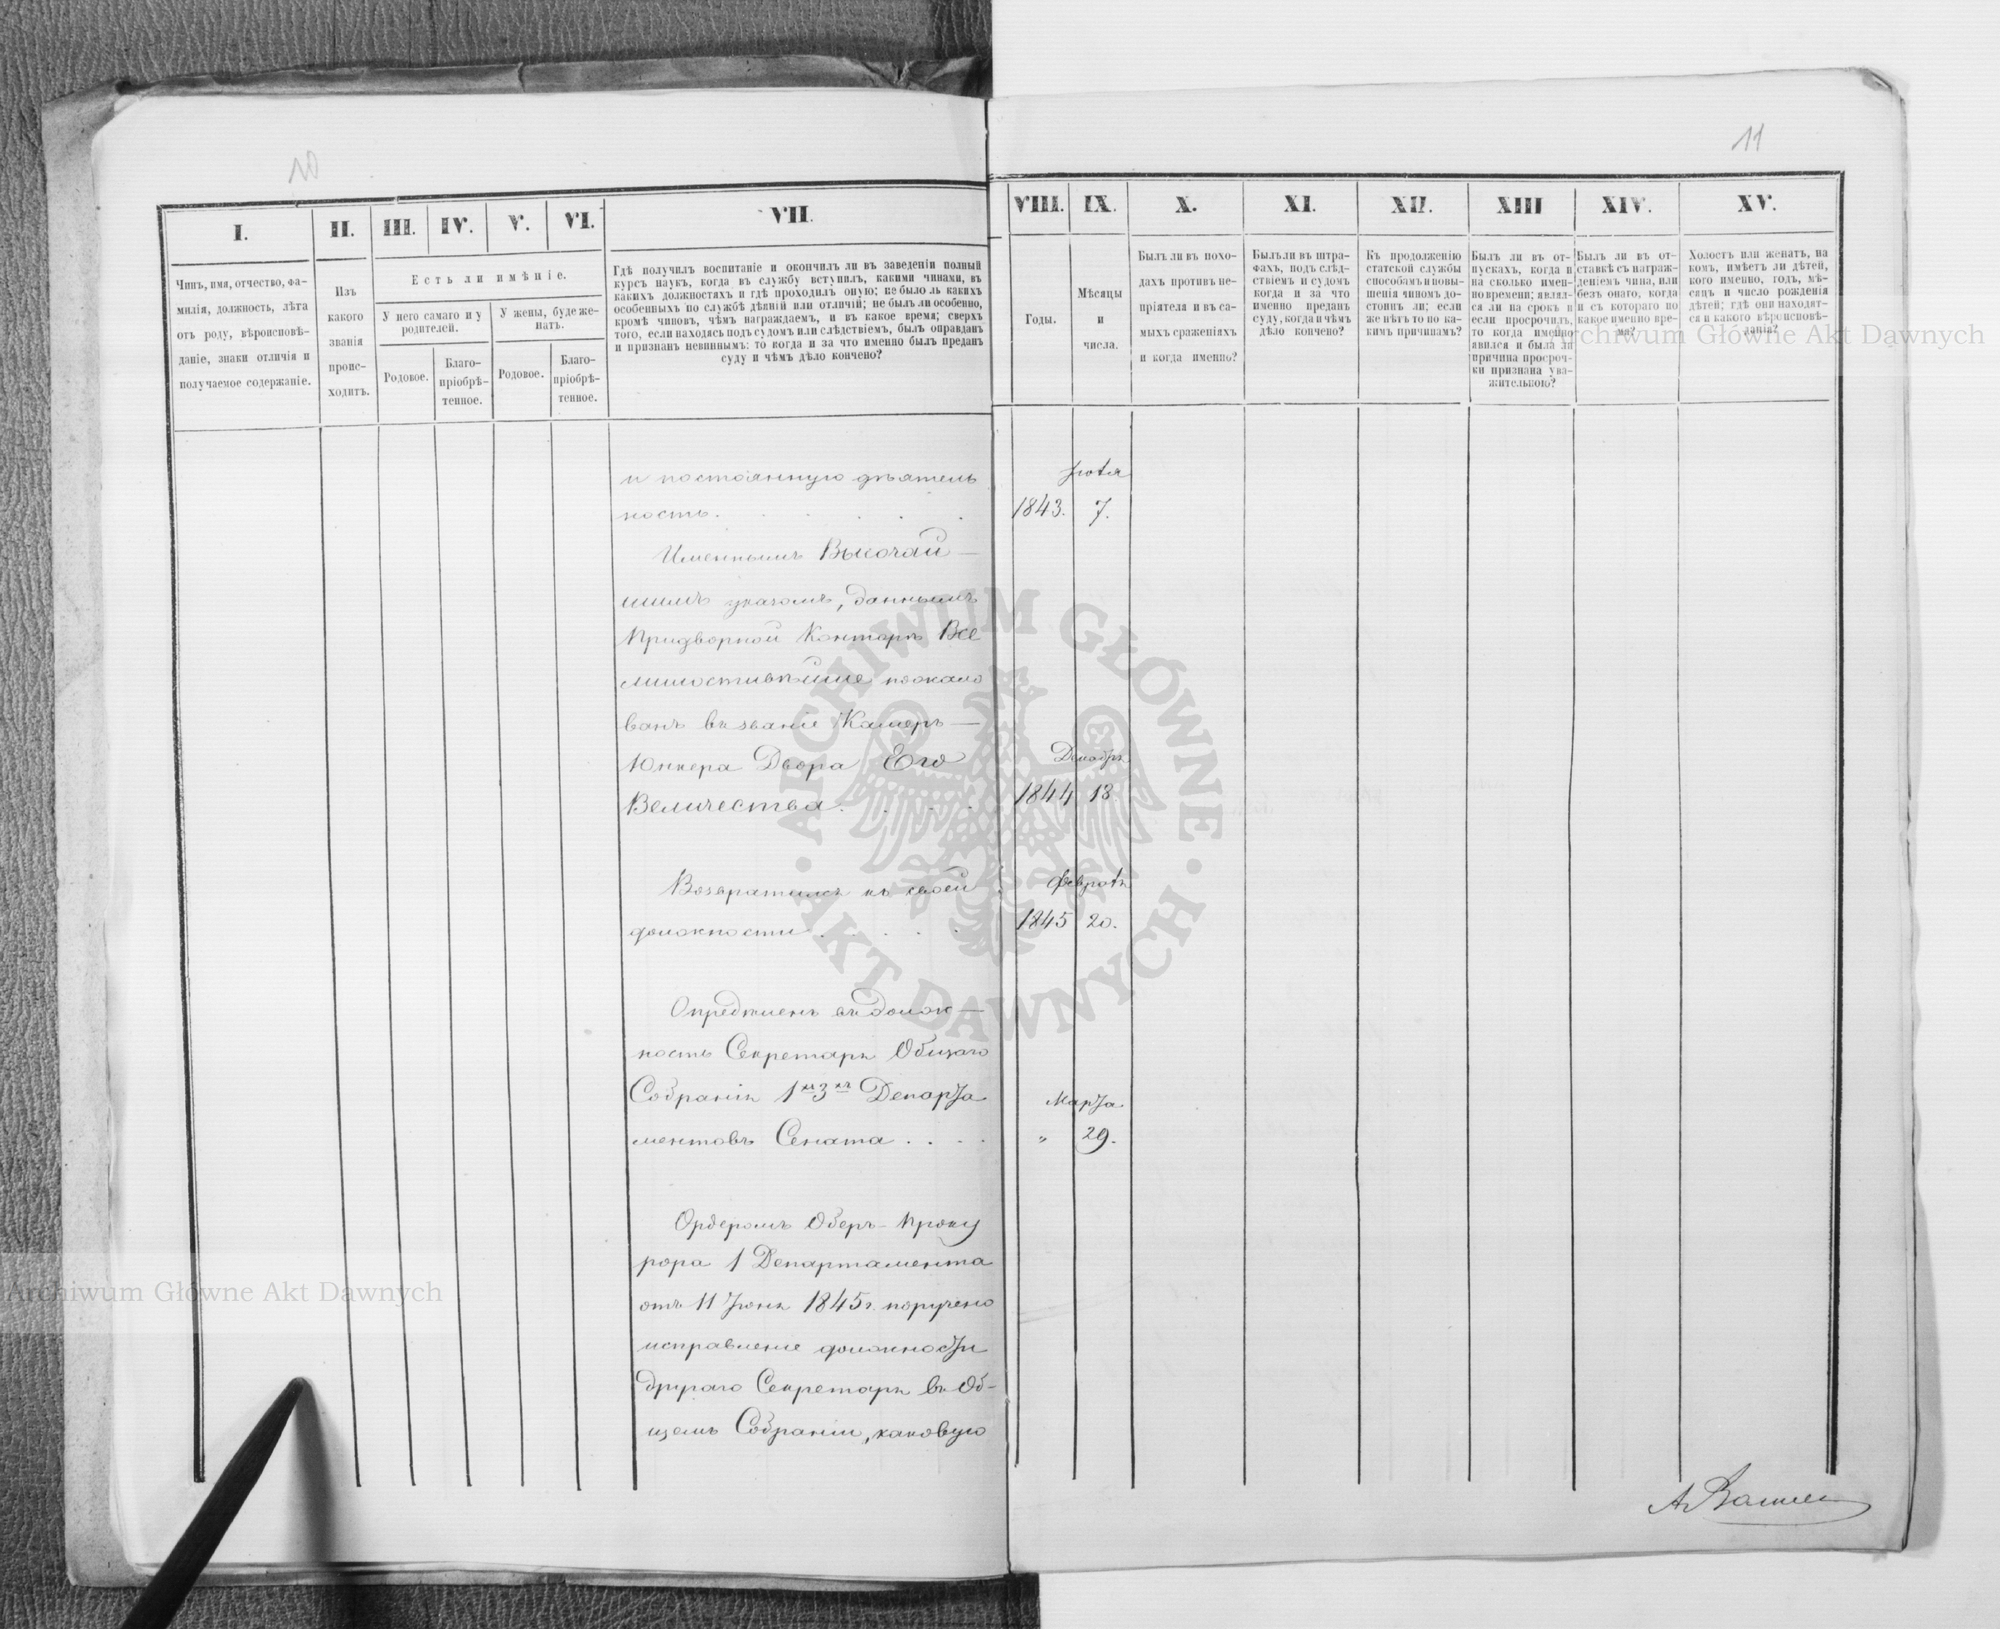 10
11
I.
II.
III.
IV.
V.
VI.
VII.
VIII.
IX.
X.
XI.
XII.
XIII
XIV.
XV.
Чинъ, имя, отчество, фа-
милія, должность, лѣта
отъ роду, вѣроисповѣ-
даніе, знаки отличія и
получаемое содержаніе.
Изъ
какого
званія
проис-
ходитъ.
Есть ли имѣніе.
У него самаго и у
родителей.
У жены, буде же-
натъ.
Родовое.
Благо-
пріобрѣ-
тенное.
Родовое.
Благо-
пріобрѣ-
тенное.
Гдѣ получилъ воспитаніе и окончилъ ли въ заведеніи полный
курсъ наукъ, когда въ службу вступилъ, какими чинами, въ
какихъ должностяхъ и гдѣ проходилъ оную; не было ль какихъ
особенныхъ по службѣ дѣяній или отличій; не былъ ли особенно,
кромѣ чиновъ, чѣмъ награждаемъ, и въ какое время; сверхъ
того, если находясь подъ судомъ или слѣдствіемъ, былъ оправданъ
и признанъ невиннымъ: то когда и за что именно былъ преданъ
суду и чѣмъ дѣло кончено?
Годы.
Мѣсяцы
и
числа.
Былъ ли въ похо-
дахъ противъ не-
пріятеля и въ са-
мыхъ сраженіяхъ
и когда именно?
Былъ ли въ штра-
фахъ, подъ слѣд-
ствіемъ и судомъ
когда и за что
именно преданъ
суду, когда и чѣмъ
дѣло кончено?
Къ продолженію
статской службы
способенъ и повы-
шенія чиномъ до-
стоинъ ли; если
же нѣтъ то по ка-
кимъ причинамъ?
Былъ ли въ от-
пускахъ, когда и
на сколько имен-
но времени; являл-
ся ли на срокъ и
если просрочилъ,
то когда именно
явился и была ли
причина просроч-
ки признана ува-
жительною?
Былъ ли въ от-
ставкѣ съ награж-
деніемъ чина, или
безъ онаго, когда
и съ котораго по
какое именно вре-
мя?
Холостъ или женатъ, на
комъ, имѣетъ ли дѣтей,
кого именно, годъ, мѣ-
сяцъ и число рожденія
дѣтей; гдѣ они находят-
ся и какого вѣроисповѣ-
данія?
и постоянную дѣятель
ность.
Іюля
1843. 7.
Именнымъ Высочай—
шимъ указомъ, даннымъ
Придворной Конторѣ Все
милостивѣйше пожало
ванъ въ званіе Камеръ—
Юнкера Двора Его
Величества.
Декабря
1844 13.
Возвратился къ своей
должности
Февраля
1845 20.
Опредѣленъ въ долж—
ность Секретаря Общаго
Собранія 1хъ 3хъ Департа
ментовъ Сената
Марта
„ 29.
Ордеромъ Оберъ-Проку
рора 1 Департамента
отъ 11 Іюня 1845г. поручено
исправленіе должности
другаго Секретаря въ Об-
щемъ Собраніи, каковую
Archiwum Główne Akt Dawnych
Archiwum Główne Akt Dawnych
ARCHIWUM GŁÓWNE · AKT DAWNYCH ·